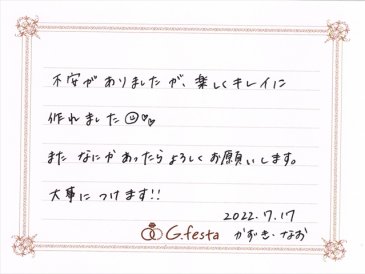 不安がありましたが、楽しくキレイに
作れました☺♡♡
また なにかあったらよろしくお願いします。
大事につけます!!
2022.7.17
G.festa かずき・なお